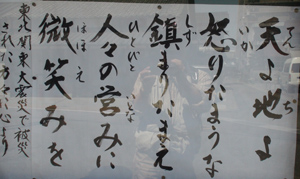 天よ地よ
てん ち
怒りたまうな
いか
鎮まりたまえ
しず
人々の営みに
ひとびと いとな
微笑みを
ほほ え
東北関東大震災で被災
された方々に心より